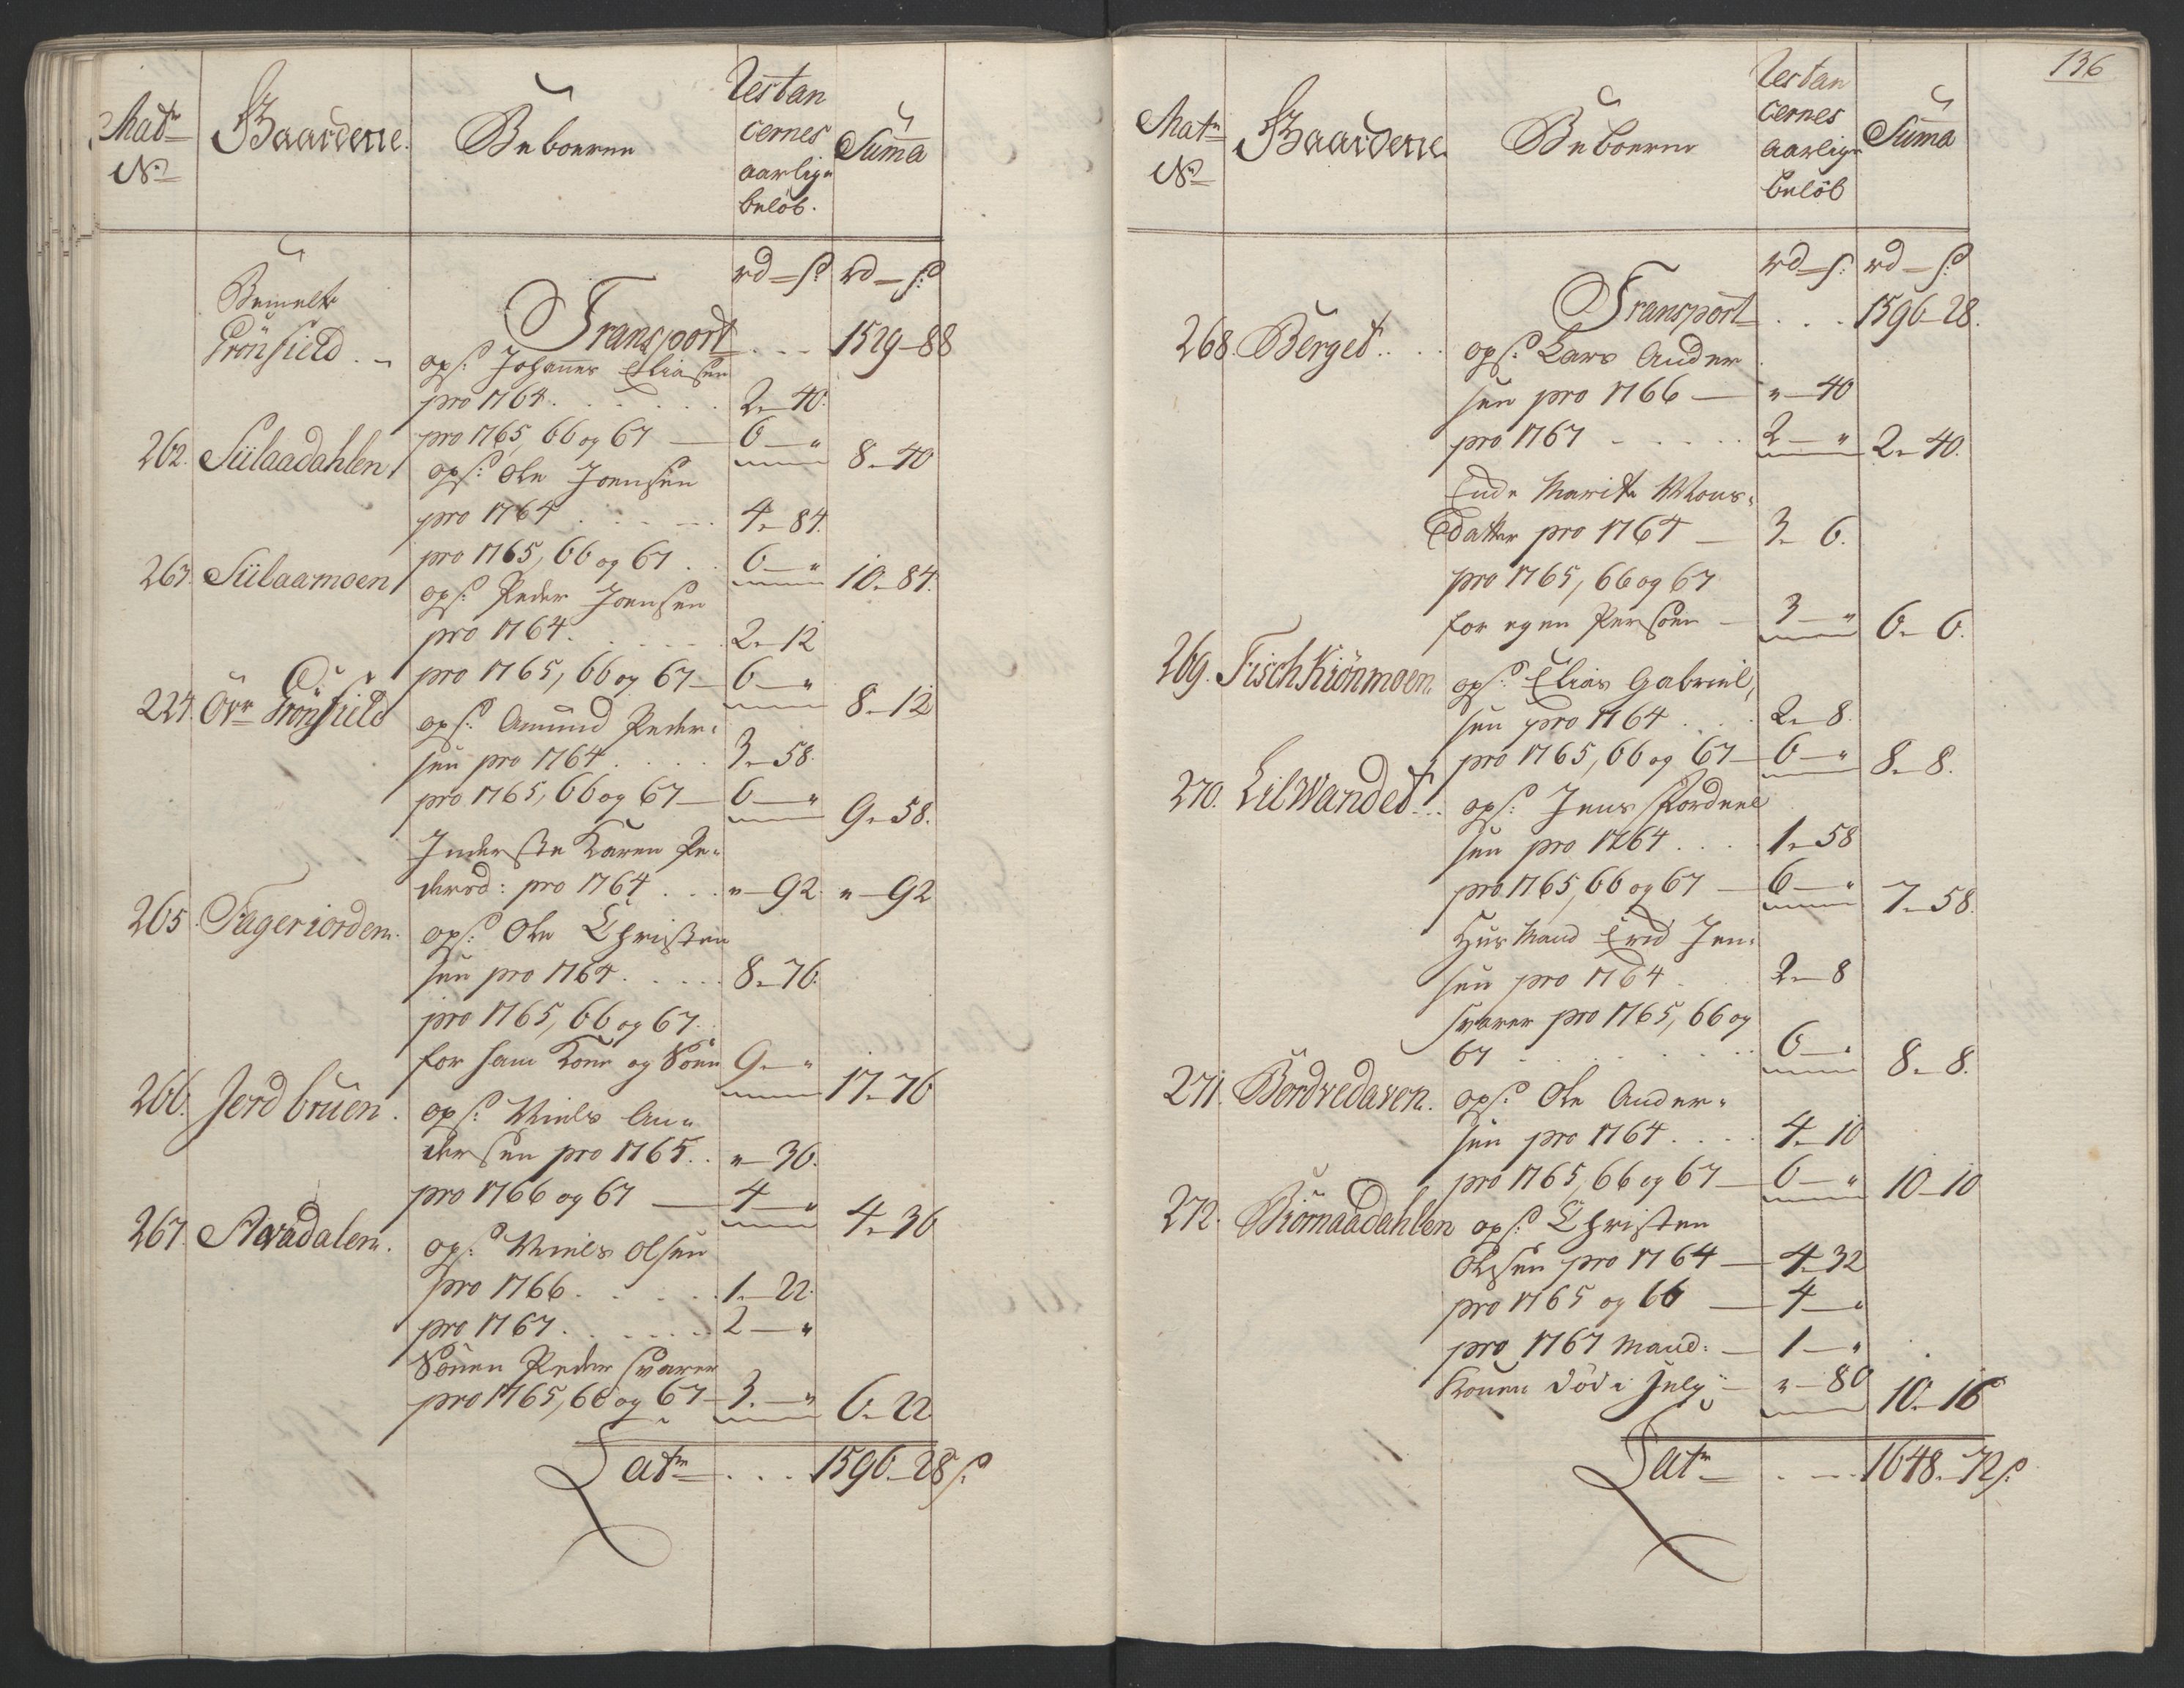 Matr
No
Gaardene.
Beboerne
Restan
cernes
aarlige
beløb.
Suma
rd — s: rd — s:
Bemelte
Grönfield . –
Transport . . . 1529 – 88
ops: Johannes Eliasen
pro 1764 . . . . . . 2 – 40.
pro 1765, 66 og 67 — 6 — " 8 – 40
262. Sülaadahlen ops: Ole Joensen
pro 1764 . . . . . 4 – 84.
pro 1765, 66 og 67 . . 6 — " 10 – 84.
263. Sülaamoen ops: Peder Joensen
pro 1764. . . . . . 2 – 12
pro 1765, 66 og 67 — 6 — " 8 – 12
224. Övr Grönfield ops: Amund Peder-
sen pro 1764 . . . . 3 – 58.
pro 1765, 66 og 67 — 6 — " 9 – 58.
Inderste Karen Pe-
dersd: pro 1764 . . . " – 92. " – 92
265. Fageriorden. ops: Ole Christen
sen pro 1764. . . . . 8 – 76.
pro 1765, 66 og 67.
for ham Kone og Sönn 9 — "
17 – 76
266. Jerdbruen. ops: Niels An-
dersen pro 1765. . " – 36.
pro 1766 og 67 — 4 — "
4 – 36
267. Avadalen. ops: Niels Olsen
pro 1766. . . . . 1 – 22.
pro 1767. . . . . . 2 — "
Sönen Peder svarer
pro 1765, 66 og 67 – 3. — " 6 – 22
Latr . . . 1596 – 28 s:
136
Matr
No
Gaardene
Beboerne
Restan
cernes
aarlige
beløb
Suma
rd – s: rd – s:
Transport . . . 1596 – 28.
268. Berget . . . . ops: Lars Ander
sen pro 1766 — " – 40
pro 1767 – . . . . 2 — " 2 – 40.
Enke Marite Mons-
datter pro 1764 — 3 – 6.
pro 1765, 66 og 67
for egen Persoen – 3 — " 6 – 6.
269. Fischkiönmoen. ops: Elias Gabriel,
sen pro 1764 . . . 2 – 8.
pro 1765, 66 og 67 — 6 — " 8 – 8.
270. Lilwandet . . . ops: Jens
sen pro 1764 . . . . 1 – 58
pro 1765, 66 og 67 — 6 — " 7 – 58.
Husmand Erich Jen-
sen pro 1764 . . . 2 – 8
svarer pro 1765, 66 og
67 . . . . . . . . . 6 — " 8 – 8.
271. Bordvedaven. ops: Ole Ander-
sen pro 1764 . . . . 4 – 10
pro 1765, 66 og 67 — 6 — " 10 – 10
272. Biörnaadahlen ops: Christen
Olsen pro 1764 — 4 – 32
pro 1765 og 66 — 4 — "
pro 1767 Mand. — 1 — "
Konen död i July – " – 80 10 – 16
Latr . . — . 1648 – 72 s: